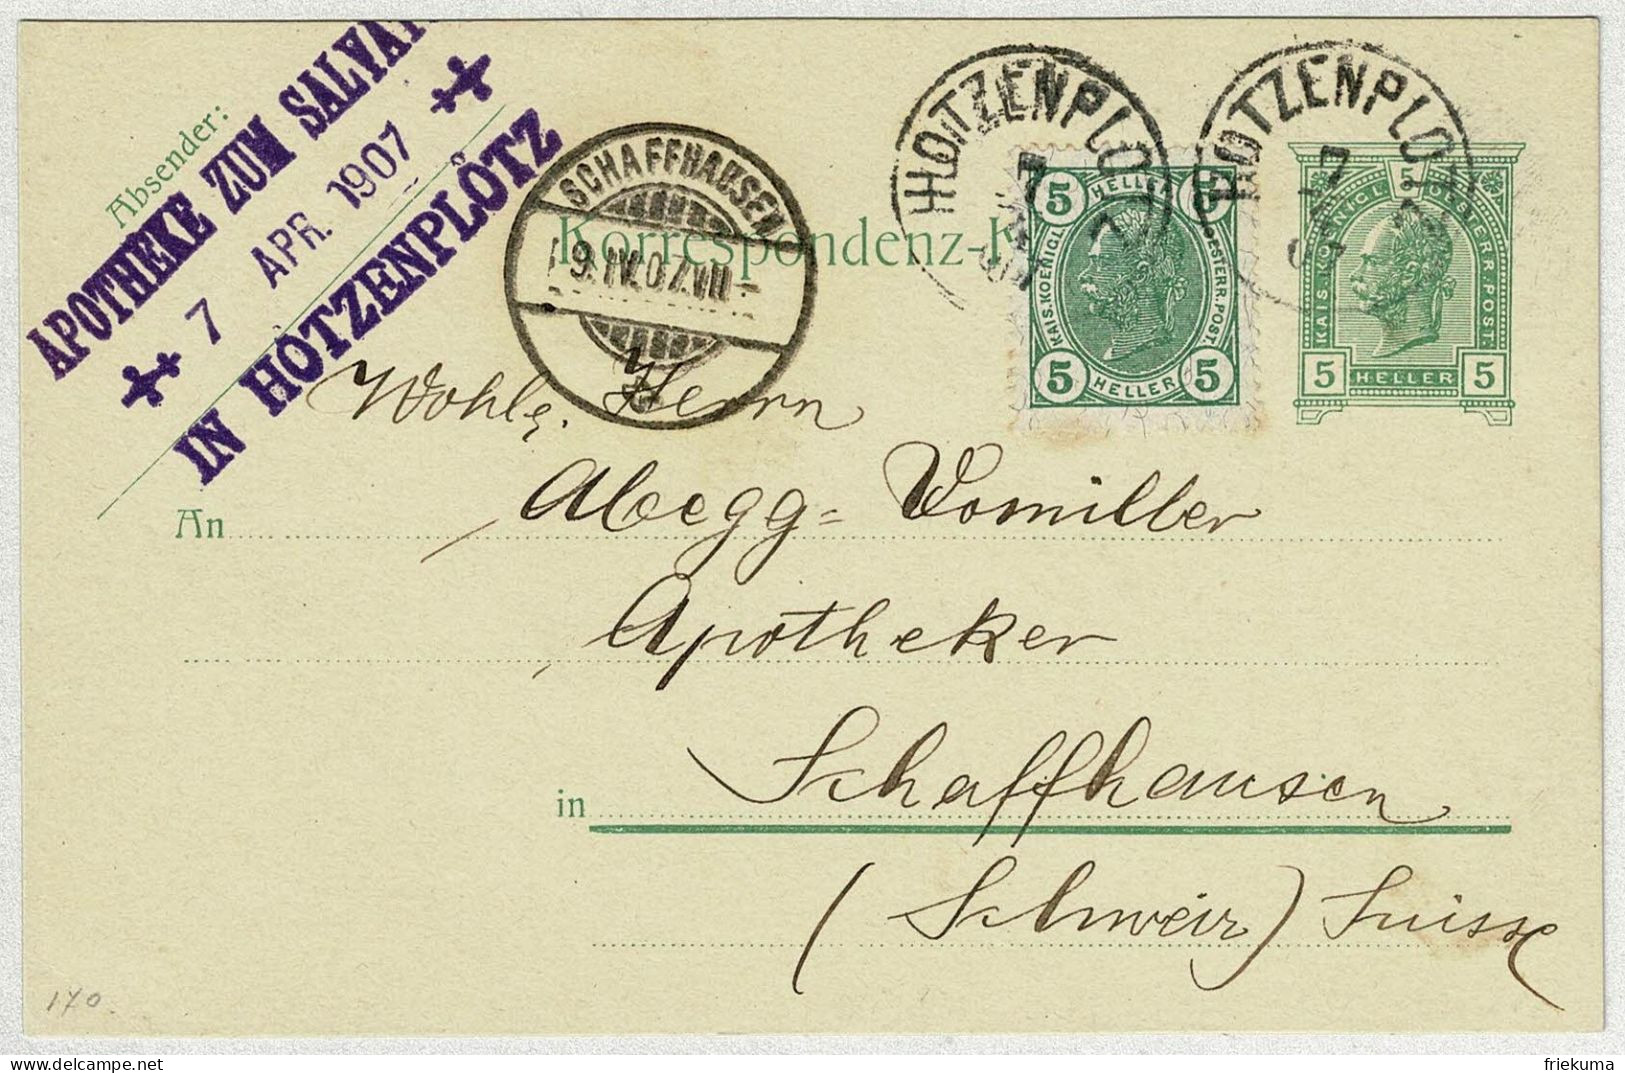 Absender:
APOTHEKE ZUM
7 APR. 1907
IN HOTZENPLOTZ
SCHAFFHAUSEN
9.IV.07.VII
HOTZENPLO
7
HOTZENPLO
7
Korrespondenz-K
5 HELLER 5
KAIS. KOENIGL. OESTERR. POST.
5 HELLER 5
KAIS. KÖNIGL. OESTERR. POST.
5 HELLER 5
Herrn
An Abegg=Vomiller
Apotheker
in Schaffhausen
(Schweiz) Suisse
170.
friekuma